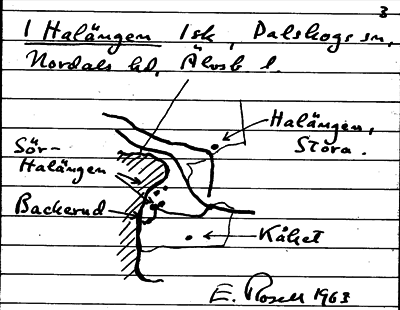 3
1 Halängen 1sk, Dalskogs sn,
Nordals hd, Älvsb l.
Halängen,
Stora.
Sör-
Halängen
Backerud
Kåket
E. Rosell 1963